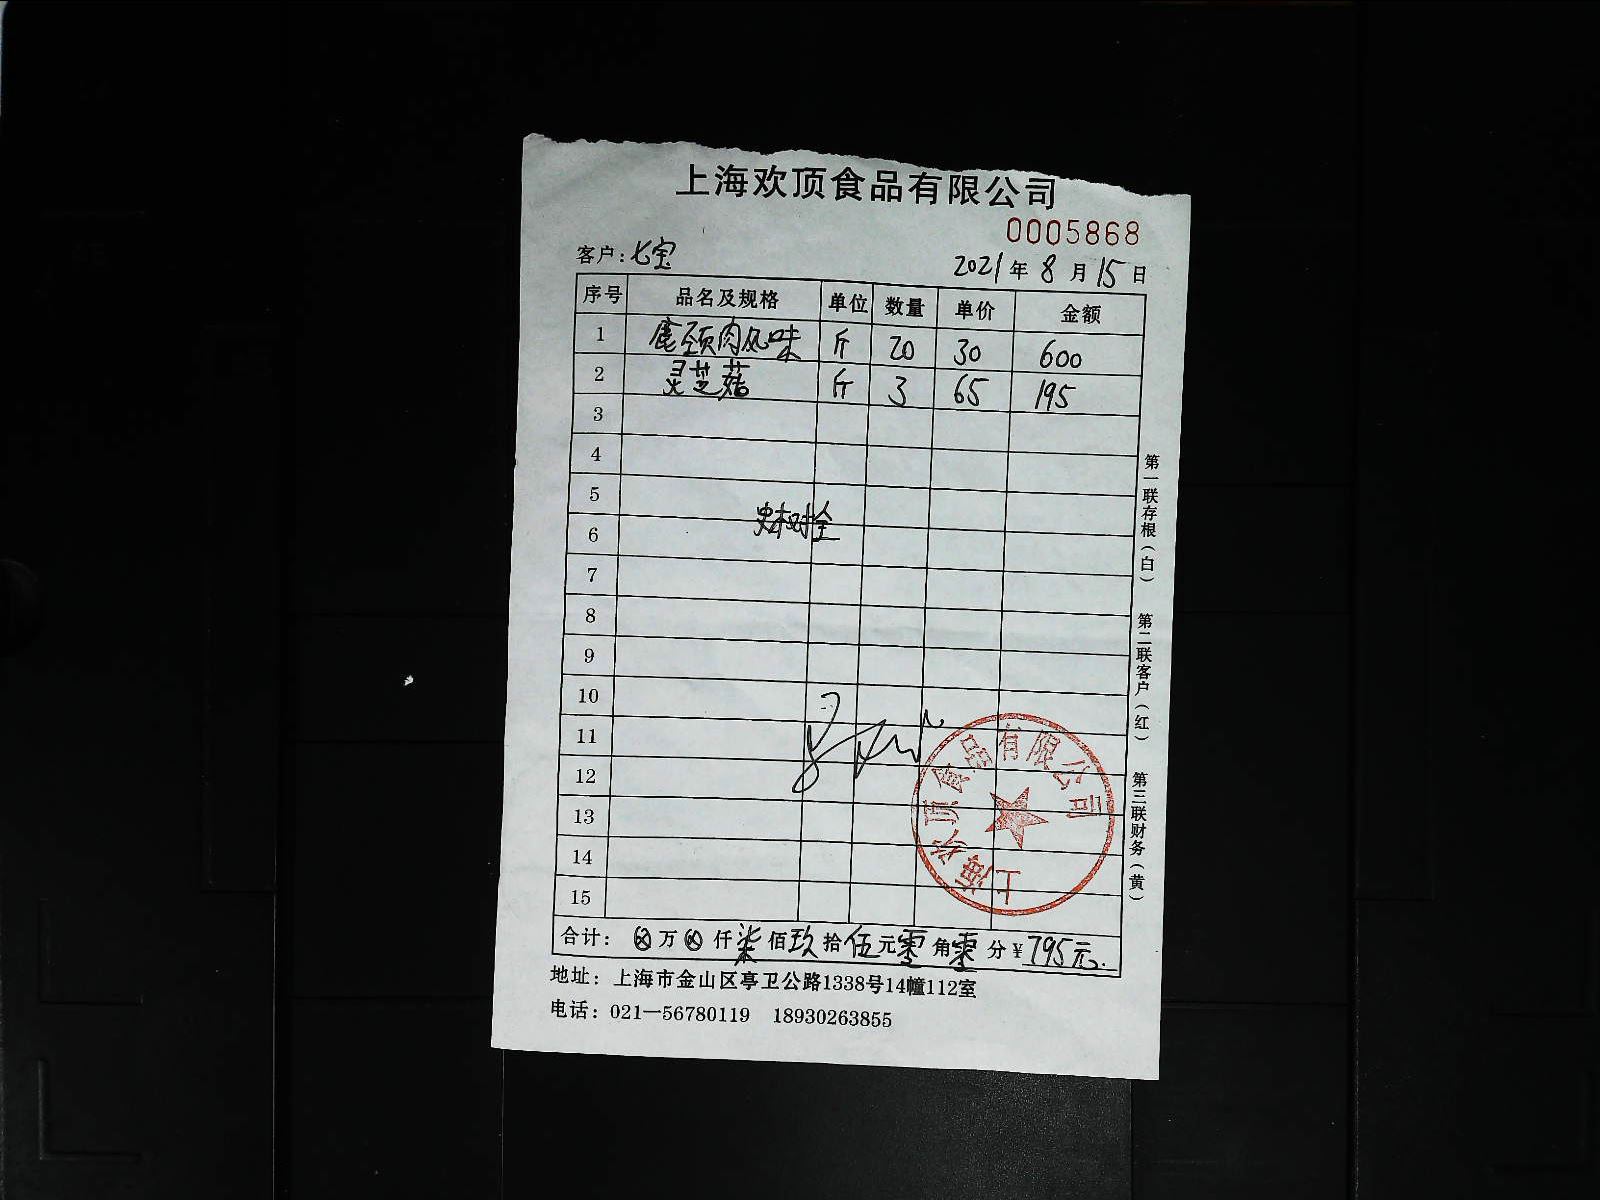 上海欢顶食品有限公司
0005868
客户：七宝 2021年8月15日
序号 品名及规格 单位 数量 单价 金额
1 鹿颈肉风味 斤 20 30 600
2 灵芝菇 斤 3 65 195
3
4
5
6
7
8
9
10
11
12
13
14
15
上海欢顶食品有限公司
合计： ⊗万⊗仟柒佰玖拾伍元零角零分¥795元.
地址：上海市金山区亭卫公路1338号14幢112室
电话：021—56780119 18930263855
第一联存根（白） 第二联客户（红） 第三联财务（黄）